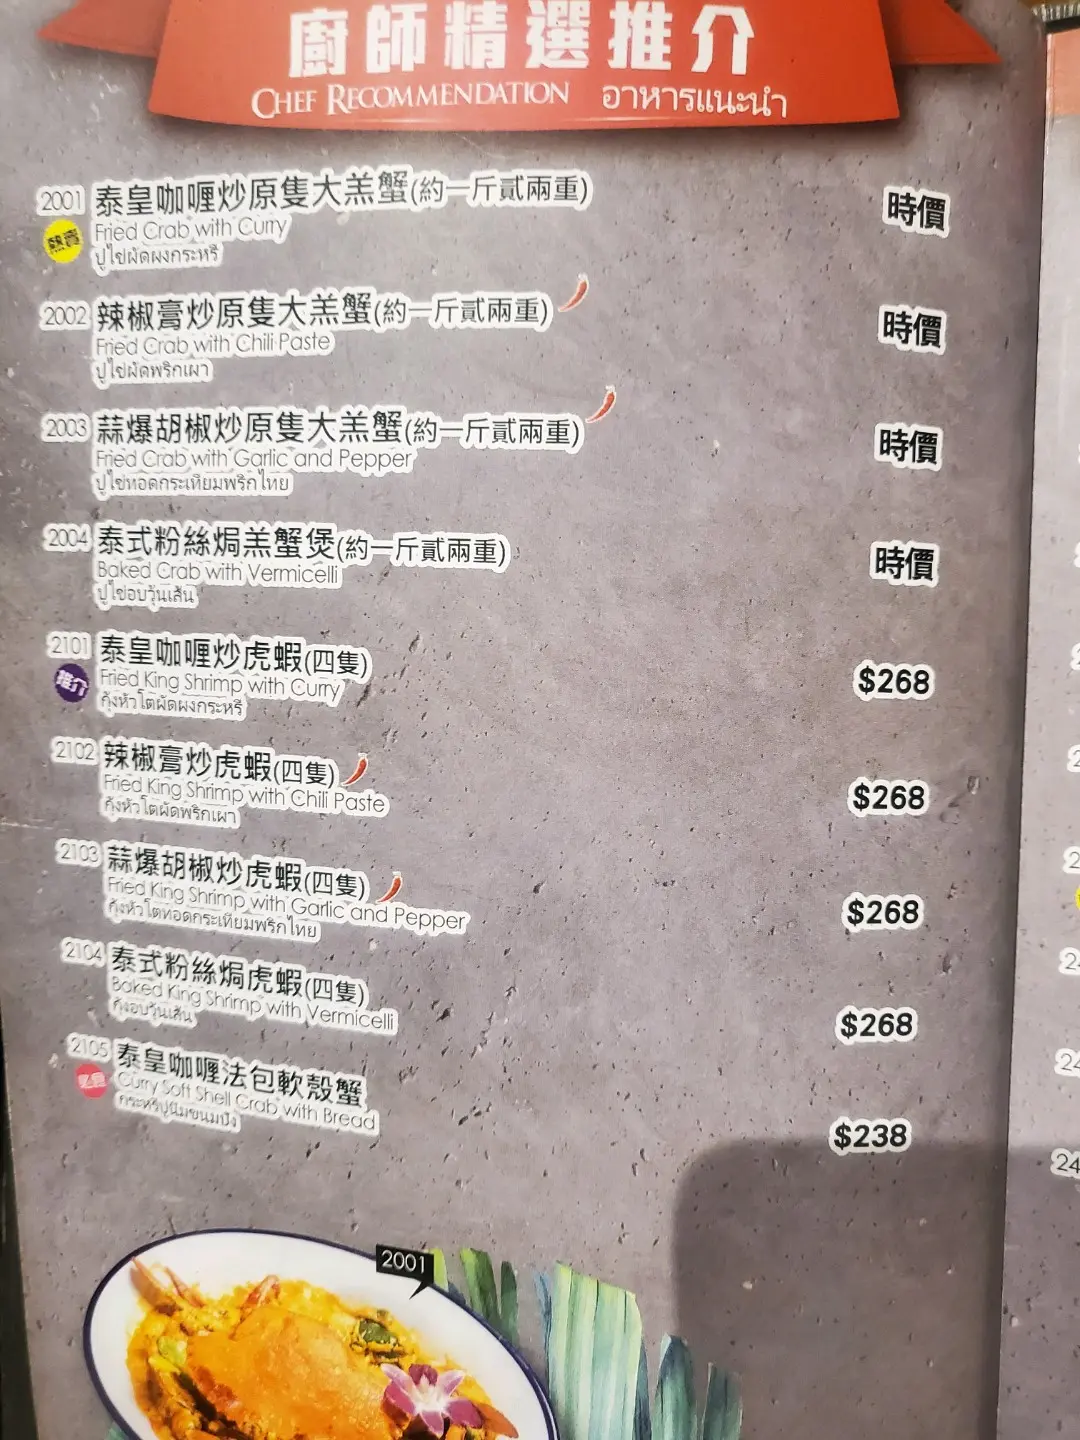 廚師精選推介
CHEF RECOMMENDATION อาหารแนะนำ
2001 泰皇咖喱炒原隻大羔蟹(約一斤貳兩重) 時價
熱賣 Fried Crab with Curry
ปูไข่ผัดผงกระหรี่
2002 辣椒膏炒原隻大羔蟹(約一斤貳兩重) 時價
Fried Crab with Chili Paste
ปูไข่ผัดพริกเผา
2003 蒜爆胡椒炒原隻大羔蟹(約一斤貳兩重) 時價
Fried Crab with Garlic and Pepper
ปูไข่ทอดกระเทียมพริกไทย
2004 泰式粉絲焗羔蟹煲(約一斤貳兩重) 時價
Baked Crab with Vermicelli
ปูไข่อบวุ้นเส้น
2101 泰皇咖喱炒虎蝦(四隻) $268
推介 Fried King Shrimp with Curry
กุ้งหัวโตผัดผงกระหรี่
2102 辣椒膏炒虎蝦(四隻) $268
Fried King Shrimp with Chili Paste
กุ้งหัวโตผัดพริกเผา
2103 蒜爆胡椒炒虎蝦(四隻) $268
Fried King Shrimp with Garlic and Pepper
กุ้งหัวโตทอดกระเทียมพริกไทย
2104 泰式粉絲焗虎蝦(四隻) $268
Baked King Shrimp with Vermicelli
กุ้งอบวุ้นเส้น
2105 泰皇咖喱法包軟殼蟹 $238
Curry Soft Shell Crab with Bread
กระหรี่ปูนิ่มขนมปัง
2001